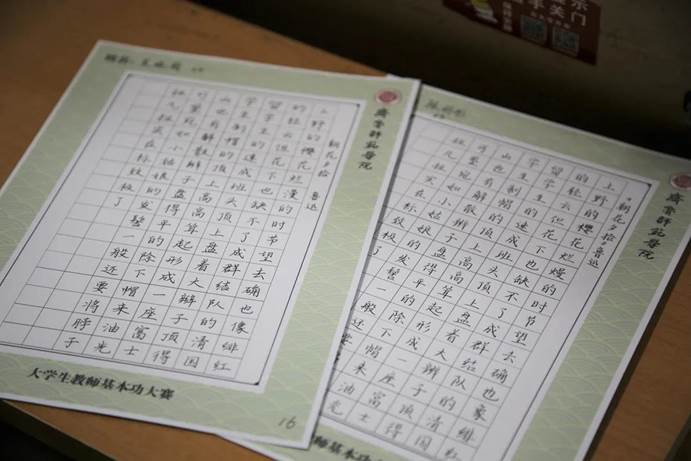 顾龄
朝花夕拾 鲁迅
上野的樱花烂漫的时节望去确也像绯红
的轻云但花下也缺不了成群结队的清国
留学生的速成班头顶上盘着大辫子顶得
学生制帽的顶上高高耸起形成一座富士
山也有解散辫子盘得平的除下帽来油光
可鉴宛如小姑娘的发髻一般还要将脖子
扭几扭实在标致极了
大学生教师基本功大赛
16
朝花夕拾 鲁迅
上野的樱花烂熳的时节望去确也象绯红
的轻云但花下也缺不了成群结队的清国
留学生的速成班头顶上盘着大辫子顶得
学生制帽的顶上高高耸起形成一座富士
山也有解散辫子盘得平的除下帽来油光
可鉴宛如小姑娘的发髻一般还
极了
师基本功大赛